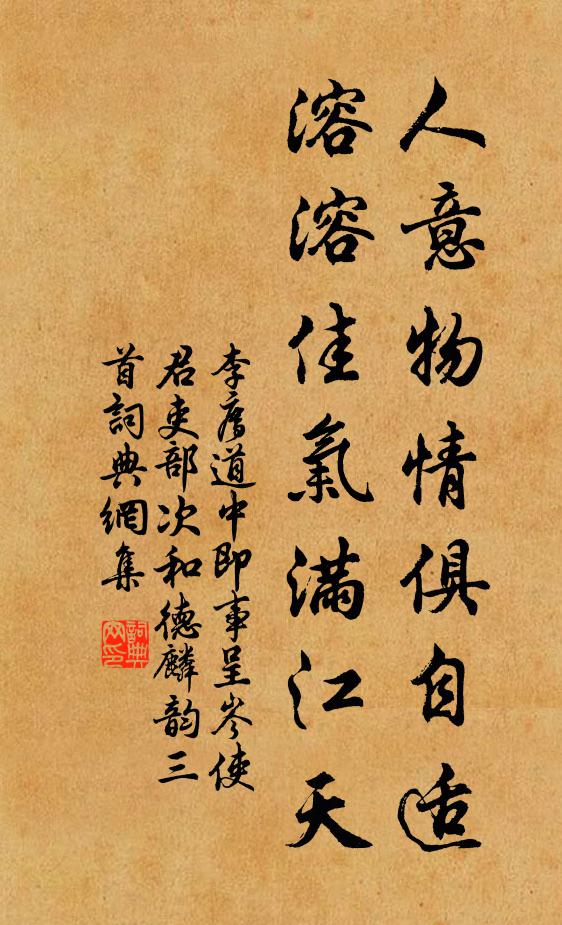 人意物情俱自适
溶溶佳氣滿江天
李廌道中即事呈岑使
君吏部次和德麟韵三
首詞典網集
詞典
网印